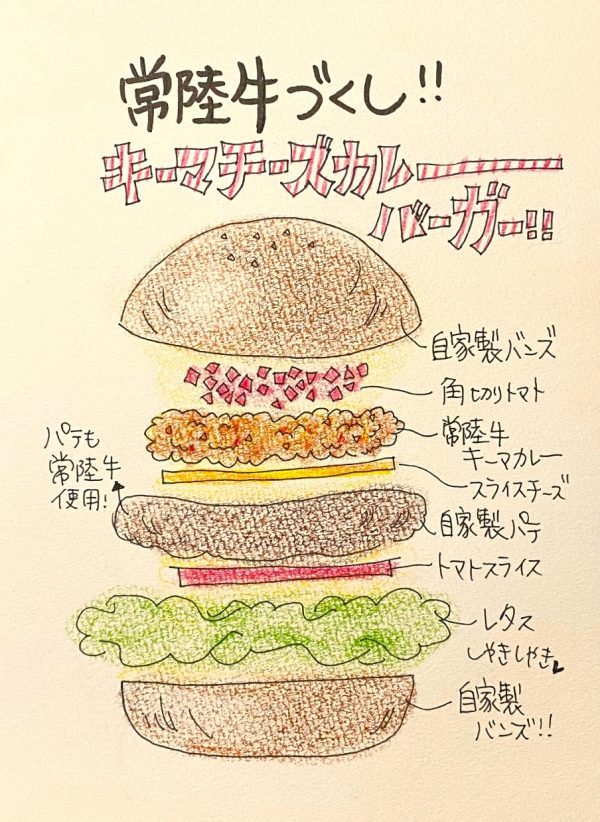 常陸牛づくし!!
キーマチーズカレー
バーガー!!
自家製バンズ
角切りトマト
常陸牛
キーマカレー
スライスチーズ
パテも
常陸牛
使用!
自家製パテ
トマトスライス
レタス
しゃきしゃき
自家製
バンズ!!